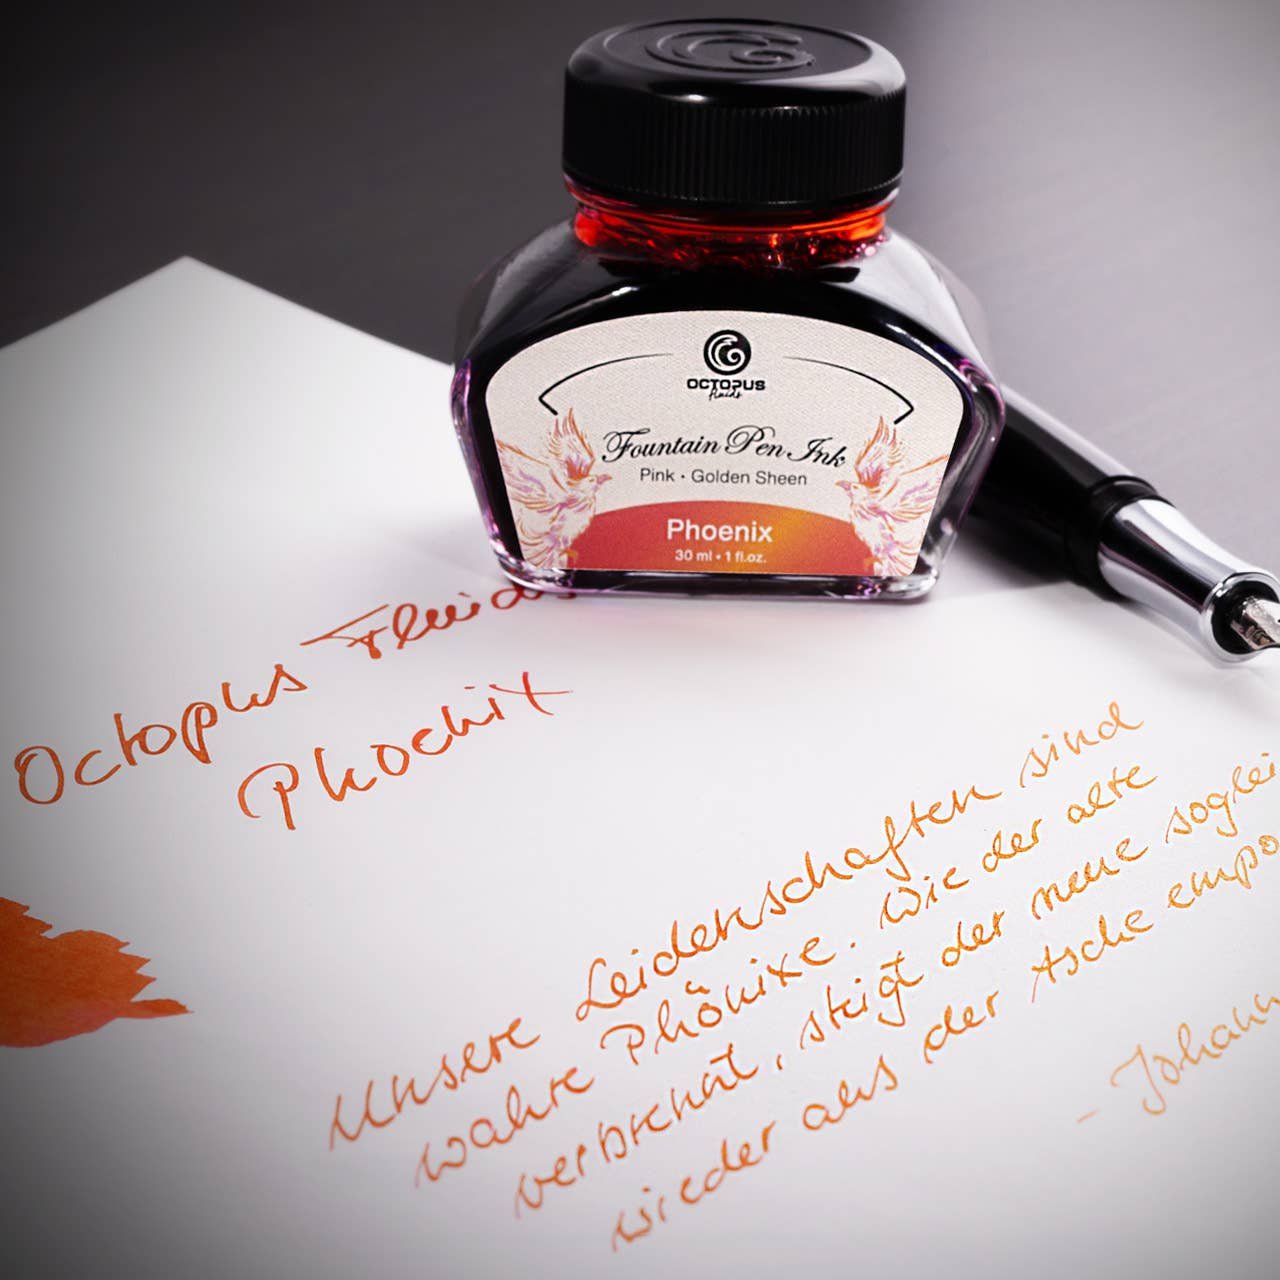 OCTOPUS
fluids
Fountain Pen Ink
Pink · Golden Sheen
Phoenix
30 ml • 1 fl.oz.
Octopus Fluids
Phoenix
Unsere Leidenschaften sind
wahre Phönixe. Wie der alte
verbrennt, steigt der neue soglei
wieder aus der Asche empo
- Johann